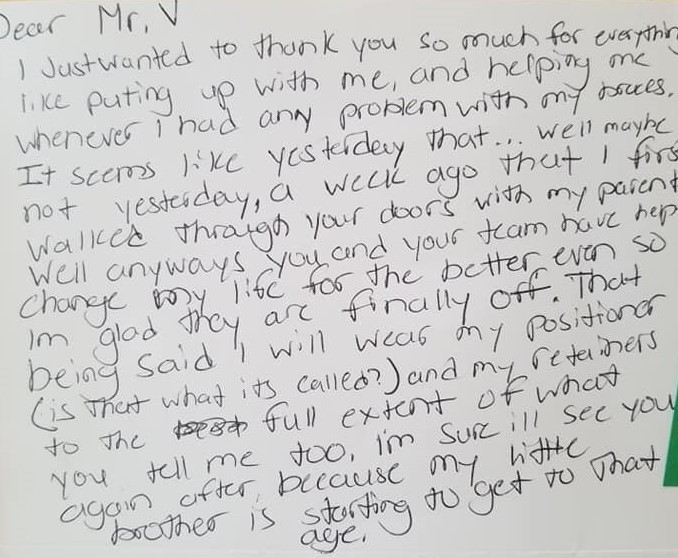 Dear Mr. V
I Just wanted to thank you so much for everythin
like puting up with me, and helping me
whenever I had any problem with my braces.
It seems like yesterday that... well maybe
not yesterday, a week ago that I firs
walked through your doors with my parent
Well anyways you and your team have help
change my life for the better even so
Im glad they are finally off. That
being said I will wear my positioner
(is that what its called?) and my retainers
to the full extent of what
you tell me too, i'm sure ill see you
again after, because my little
brother is starting to get to that
age.